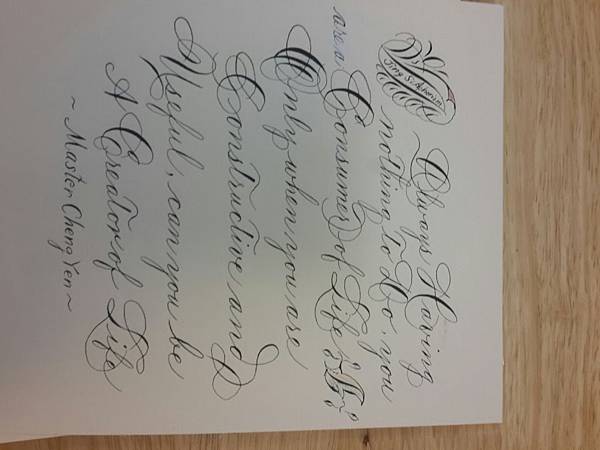 Always Having
nothing to Do, you
are a Consumer of Life
Only when you are
Constructive and
Useful, can you be
A Creator of Life
~ Master Cheng Yen ~